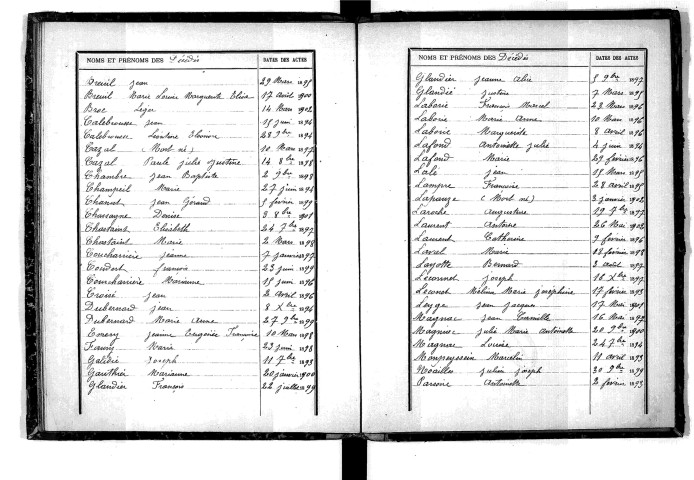 NOMS ET PRÉNOMS DES Décédés DATES DES ACTES
Breuil Jean 29 Mars 1895
Breuil Marie Louise Marguerite Elise 17 Avril 1900
Broc Léger 14 Mars 1902
Calebrousse Jean 15 juin 1894
Calebrousse Léontine Eléonore 28 9bre 1894
Cazal (Mort né) 10 Mars 1897
Cazal Paule Julie Justine 14 8bre 1898
Chambre Jean Baptiste 2 9bre 1898
Champeil Marie 27 juin 1894
Chanot Jean Géraud 5 février 1899
Chassagne Denise 3 8bre 1901
Chastaint Elisabeth 24 7bre 1897
Chastaint Marie 2 Mars 1898
Concharrière Jeanne 7 janvier 1897
Condert François 23 juin 1899
Courcharrière Marianne 15 juin 1896
Jean 2 Avril 1896
Dubernard Jean 8 Xbre 1894
Dubernard Marie Anne 27 9bre 1899
Jeanne Eugénie Françoise 10 Mars 1898
Faury Marie 23 juin 1898
Galidie Joseph 11 7bre 1893
Gauthier Marianne 20 janvier 1900
Glandier François 22 juillet 1899
NOMS ET PRÉNOMS DES Décédés DATES DES ACTES
Glandier Jeanne Alice 5 9bre 1897
Glandié Justine 7 Mars 1895
Laborie Marcel 23 Mars 1896
Laborie Marie Anne 10 Mars 1896
Laborie Marguerite 8 avril 1896
Lafond Antoinette Julie 4 juin 1894
Lafond Marie 29 février 1896
Lalé Jean 15 Mars 1895
Lampre Françoise 28 avril 1895
Laparge (Mort né) 3 janvier 1902
Laroche Augustine 19 7bre 1897
Laurent Antoine 26 Mai 1902
Laurent Catherine 9 février 1896
Laval Marie 18 février 1898
Layotte Bernard 3 août 1897
Léonnet Joseph 16 Xbre 1897
Léonet Mélina Marie Joséphine 17 février 1893
Leyge Jean Jacques 17 Mai 1901
Magnac Jean Camille 16 Mai 1897
Magnac Julie Marie Antoinette 20 9bre 1900
Magnac Louise 24 7bre 1894
Monpeyssein Marcelin 11 Avril 1893
Noailles Julien Joseph 30 9bre 1899
Parsoire Antoinette 2 février 1893